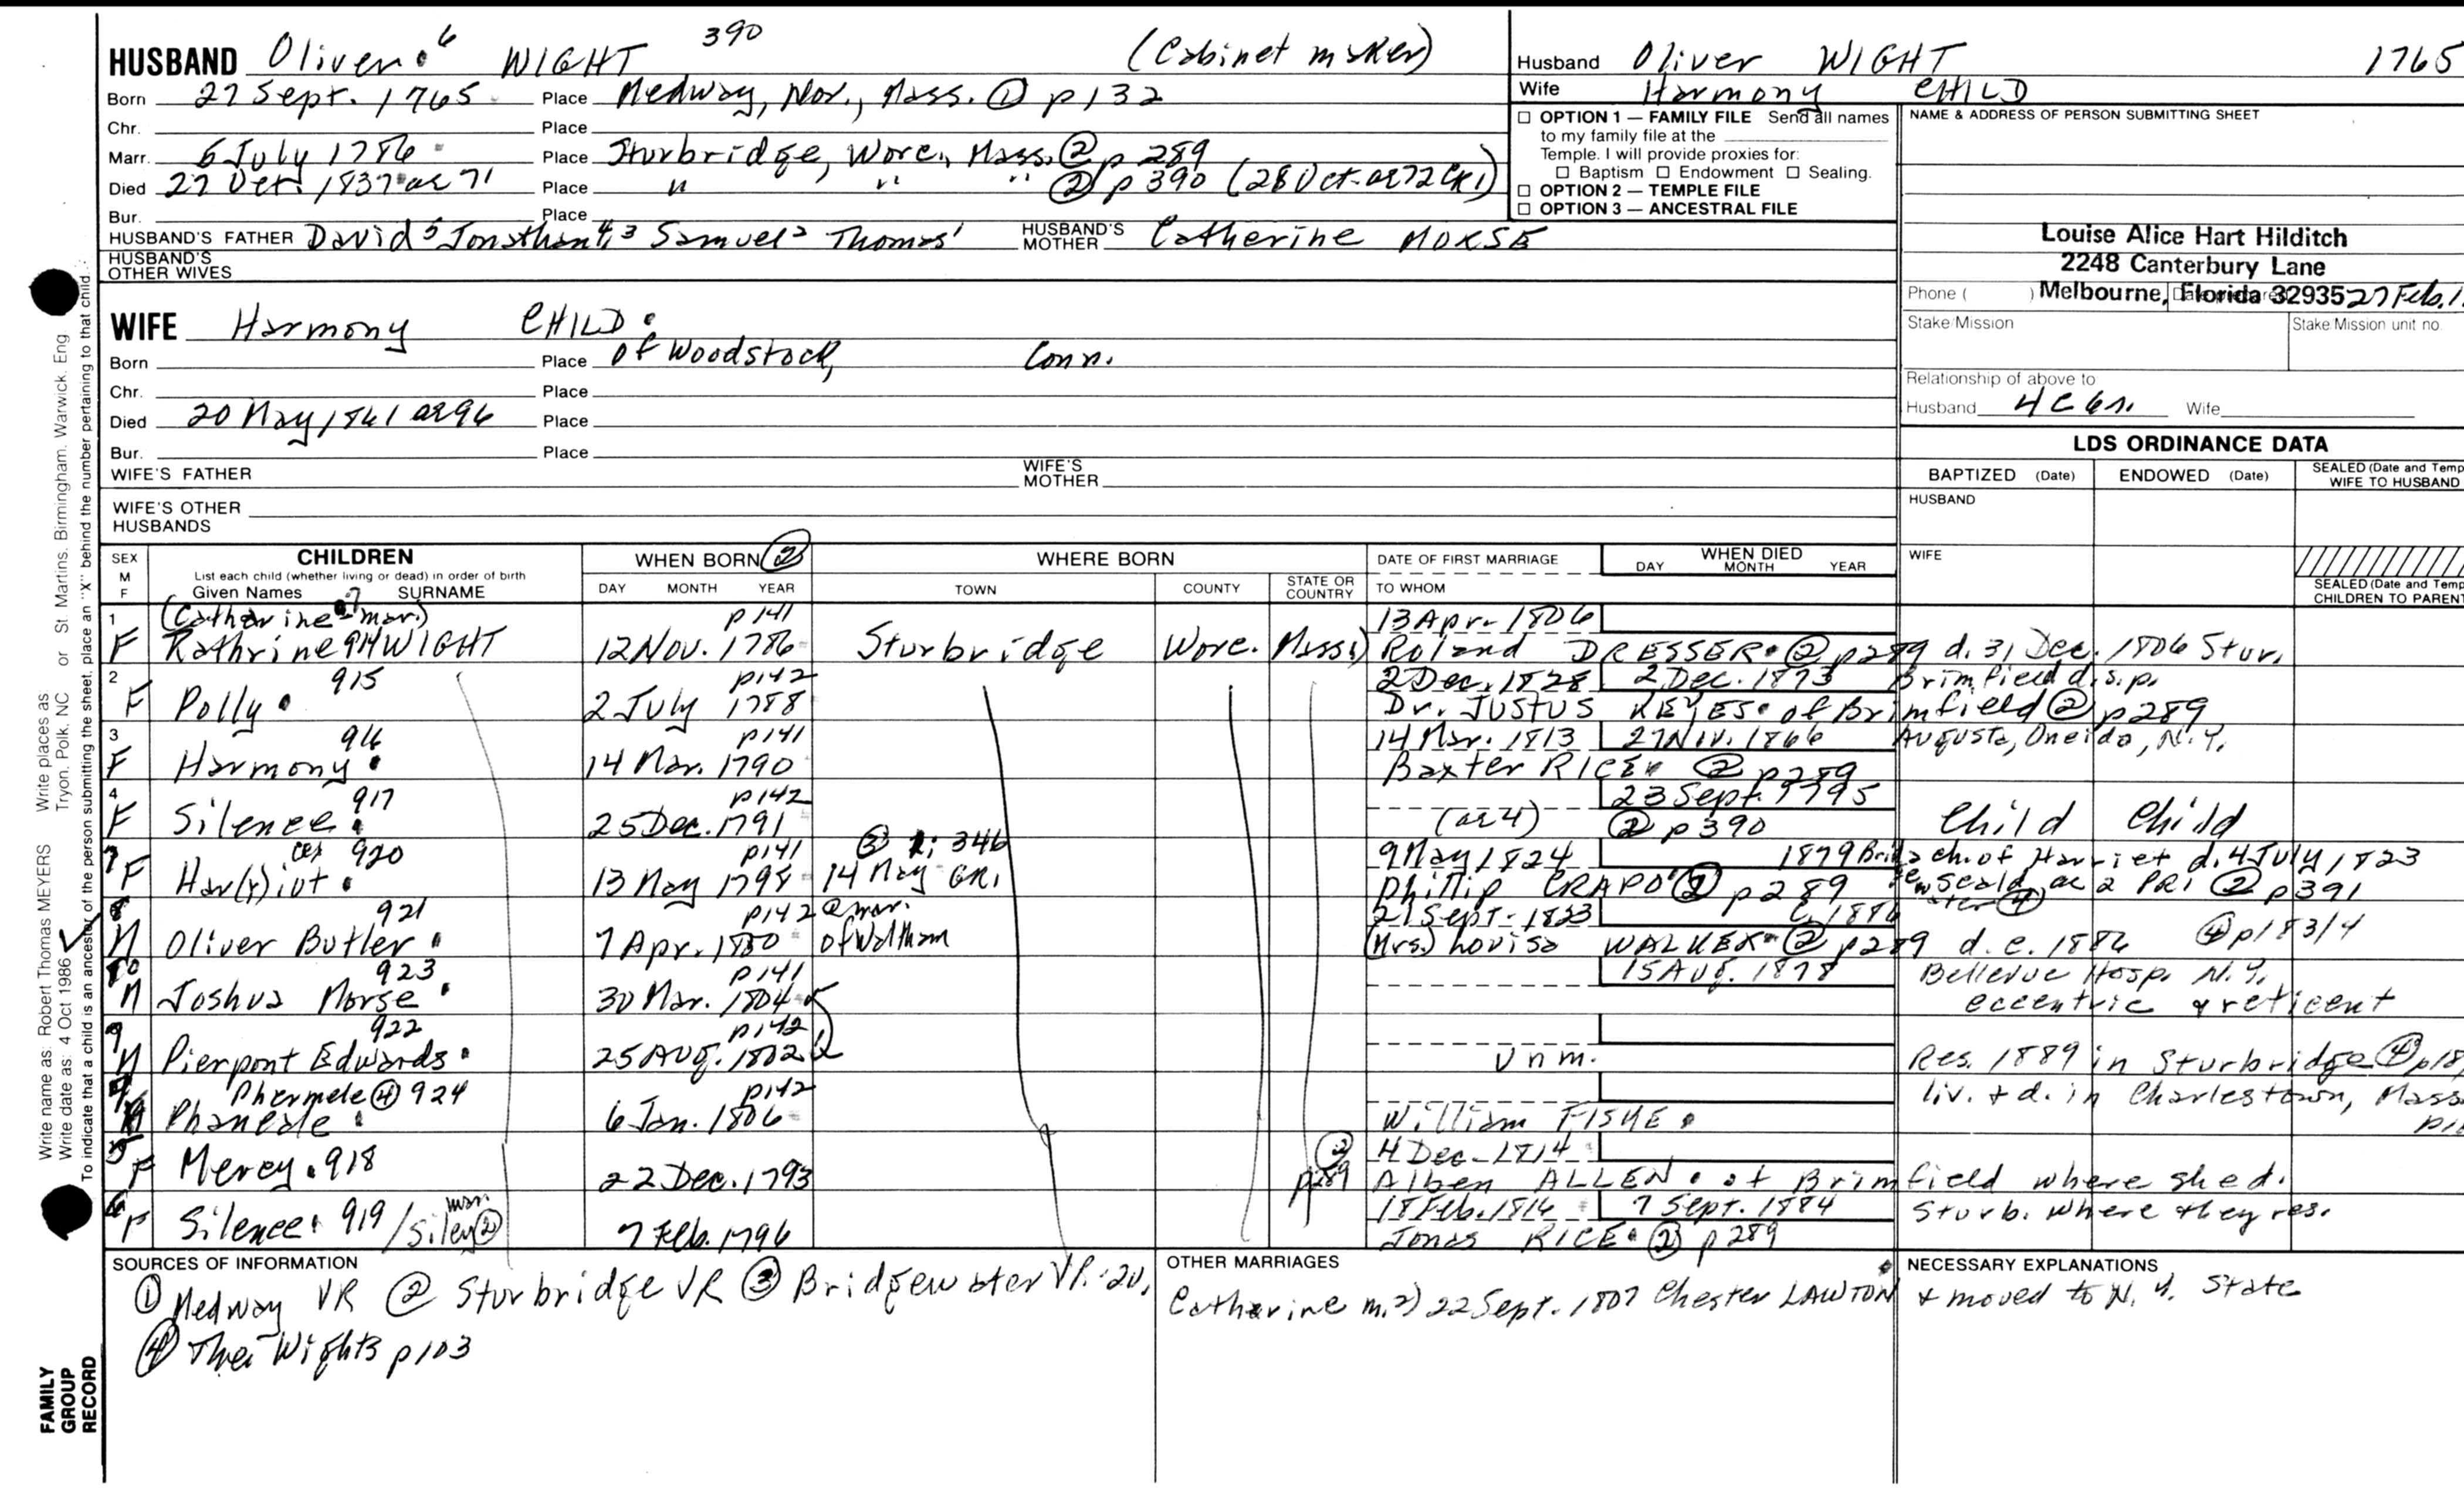 HUSBAND Oliver 6 WIGHT 390 (Cabinet maker)
Born 27 Sept. 1765 Place Medway, Nor., Mass. ① p 132
Chr. Place
Marr. 6 July 1786 Place Sturbridge, Worc., Mass. ② p 289
Died 27 Oct. 1837 ae 71 Place " " " ② p 390 (28 Oct. ae 72 CR1)
Bur. Place
HUSBAND'S FATHER David 5 Jonathan 4,3 Samuel 2 Thomas 1 HUSBAND'S MOTHER Catherine MORSE
HUSBAND'S OTHER WIVES
WIFE Harmony CHILD
Born Place of Woodstock, Conn.
Chr. Place
Died 20 May 1861 ae 96 Place
Bur. Place
WIFE'S FATHER WIFE'S MOTHER
WIFE'S OTHER HUSBANDS
Husband Oliver WIGHT 1765
Wife Harmony CHILD
☐ OPTION 1 — FAMILY FILE Send all names
to my family file at the
Temple. I will provide proxies for:
☐ Baptism ☐ Endowment ☐ Sealing.
☐ OPTION 2 — TEMPLE FILE
☐ OPTION 3 — ANCESTRAL FILE
NAME & ADDRESS OF PERSON SUBMITTING SHEET
Louise Alice Hart Hilditch
2248 Canterbury Lane
Phone ( ) Melbourne, Florida 32935 27 Feb.
Stake/Mission Stake/Mission unit no.
Relationship of above to
Husband 4C6r Wife
LDS ORDINANCE DATA
BAPTIZED (Date) ENDOWED (Date) SEALED (Date and Temp
WIFE TO HUSBAND
HUSBAND
WIFE
SEALED (Date and Temp
CHILDREN TO PARENT
SEX M F CHILDREN WHEN BORN ② WHERE BORN DATE OF FIRST MARRIAGE WHEN DIED
List each child (whether living or dead) in order of birth
Given Names 7 SURNAME DAY MONTH YEAR TOWN COUNTY STATE OR COUNTRY TO WHOM DAY MONTH YEAR
1 (Catharine - mar.) p 141 13 Apr. 1806
F Kathrine 914 WIGHT 12 Nov. 1786 Sturbridge Worc. Mass. 1) Roland DRESSER ② p 289 d. 31 Dec. 1806 Stur.
2 915 p 142 2 Dec. 1828 2 Dec. 1873 Brimfield d.s.p.
F Polly 2 July 1788 Dr. Justus KEYES of Brimfield ② p 289
3 916 p 141 14 Mar. 1813 27 Nov. 1866 Augusta, Oneida, N.Y.
F Harmony 14 Mar. 1790 Baxter RICE ② p 289
4 917 p 142 23 Sept. 1795
F Silence 25 Dec. 1791 (ae 4) ② p 390 Child Child
7 920 p 141 ③ 1: 346 9 May 1824 1879 ch. of Harriet d. 4 July 1823
F Har(r)iot 13 May 1798 14 May GR1 Phillip CRAPO ② p 289 scald, ae 2 PR1 ② p 391
8 921 p 142 @ mar. 21 Sept. 1823 c. 1886
M Oliver Butler 7 Apr. 1800 of Waltham (Mrs.) Lovisa WALKER ② p 289 d. c. 1886 ④ p 183/4
10 923 p 141 15 Aug. 1878 Bellevue Hosp. N.Y.
M Joshua Morse 30 Mar. 1804 eccentric & reticent
9 922 p 142
M Pierpont Edwards 25 Aug. 1802 Unm. Res. 1889 in Sturbridge ④ p 18
Phermele ④ 924 p 142 liv. & d. in Charlestown, Mass.
Phanerle 6 Jan. 1806 William FISKE
5 ② 4 Dec. 1814
F Mercy 918 22 Dec. 1793 p 289 Alben ALLEN at Brimfield where she d.
6 mar. 18 Feb. 1816 7 Sept. 1884 Sturb. where they res.
F Silence 919 / Siley ② 7 Feb. 1796 Jonas RICE ② p 289
SOURCES OF INFORMATION
① Medway VR ② Sturbridge VR ③ Bridgewater VR
④ The Wights p 103
OTHER MARRIAGES
Catharine m. 2) 22 Sept. 1807 Chester LAWTON & moved to N.Y. State
NECESSARY EXPLANATIONS
Write name as: Robert Thomas MEYERS Write places as St Martins, Birmingham, Warwick, Eng
Write date as: 4 Oct 1986 Tryon, Polk, NC or
To indicate that a child is an ancestor of the person submitting the sheet, place an "X" behind the number pertaining to that child.
FAMILY
GROUP
RECORD